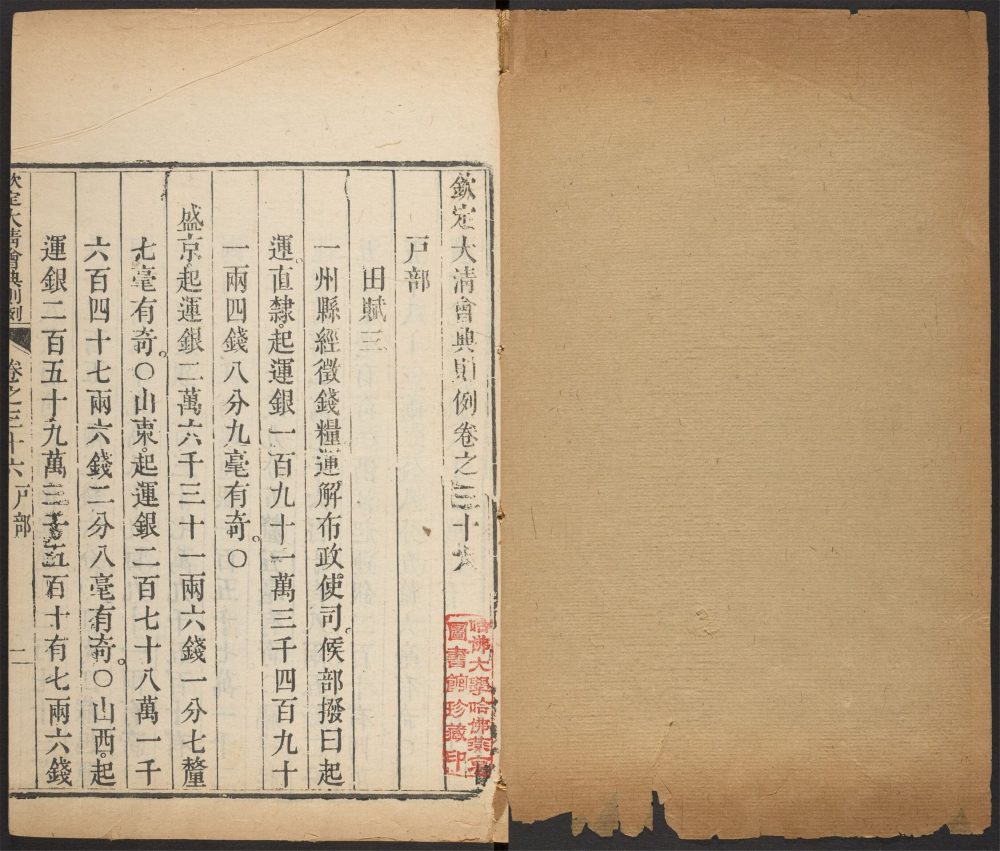 欽定大清會典則例卷之三十六
戸部
田賦三
一州縣經徵錢糧運解布政使司。候部撥曰起
運。直隸。起運銀一百九十一萬三千四百九十
一兩四錢八分九毫有奇。○
盛京。起運銀二萬六千三十一兩六錢一分七釐
七毫有奇。○山東。起運銀二百七十八萬一千
六百四十七兩六錢二分八毫有奇。○山西。起
運銀二百五十九萬三千五百十有七兩六錢
欽定大清會典則例 卷之三十六 戸部
哈佛大學哈佛燕京
圖書館珍藏印